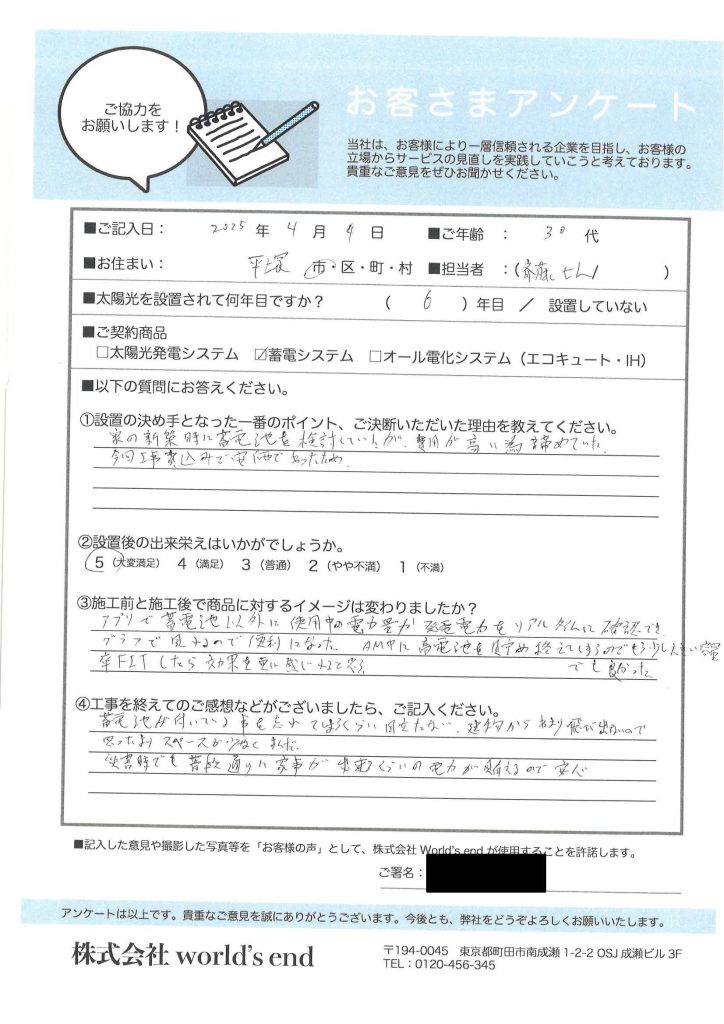 ご協力を
お願いします！
お客さまアンケート
当社は、お客様により一層信頼される企業を目指し、お客様の
立場からサービスの見直しを実践していこうと考えております。
貴重なご意見をぜひお聞かせください。
■ご記入日： 2025 年 4 月 4 日 ■ご年齢 ： 30 代
■お住まい： 平塚 市・区・町・村 ■担当者 ：(斎藤さん )
■太陽光を設置されて何年目ですか？ ( 6 ) 年目 ／ 設置していない
■ご契約商品
□太陽光発電システム ☑蓄電システム □オール電化システム（エコキュート・IH）
■以下の質問にお答えください。
①設置の決め手となった一番のポイント、ご決断いただいた理由を教えてください。
家の新築時に蓄電池を検討していたが、費用が高い為諦めていた。
今回工事費込みで安価であったため。
②設置後の出来栄えはいかがでしょうか。
5（大変満足） 4（満足） 3（普通） 2（やや不満） 1（不満）
③施工前と施工後で商品に対するイメージは変わりましたか？
アプリで蓄電池以外に使用中の電力量が発電電力をリアルタイムに確認でき、
グラフで見れるので便利になった。 AM中に蓄電池を貯め終えてしまうのでもう少し大きい容量
でも良かった
卒FITしたら効果を更に感じれると思う
④工事を終えてのご感想などがございましたら、ご記入ください。
蓄電池が付いている事を忘れてしまうくらい目立たない。建物からあまり飛び出ないので
思ったよりスペースが少なくすんだ。
災害時でも普段通りに家事が出来るくらいの電力が賄えるので安心
■記入した意見や撮影した写真等を「お客様の声」として、株式会社 World's end が使用することを許諾します。
ご署名：
アンケートは以上です。貴重なご意見を誠にありがとうございます。今後とも、弊社をどうぞよろしくお願いいたします。
株式会社 world's end
〒194-0045 東京都町田市南成瀬 1-2-2 OSJ 成瀬ビル 3F
TEL：0120-456-345